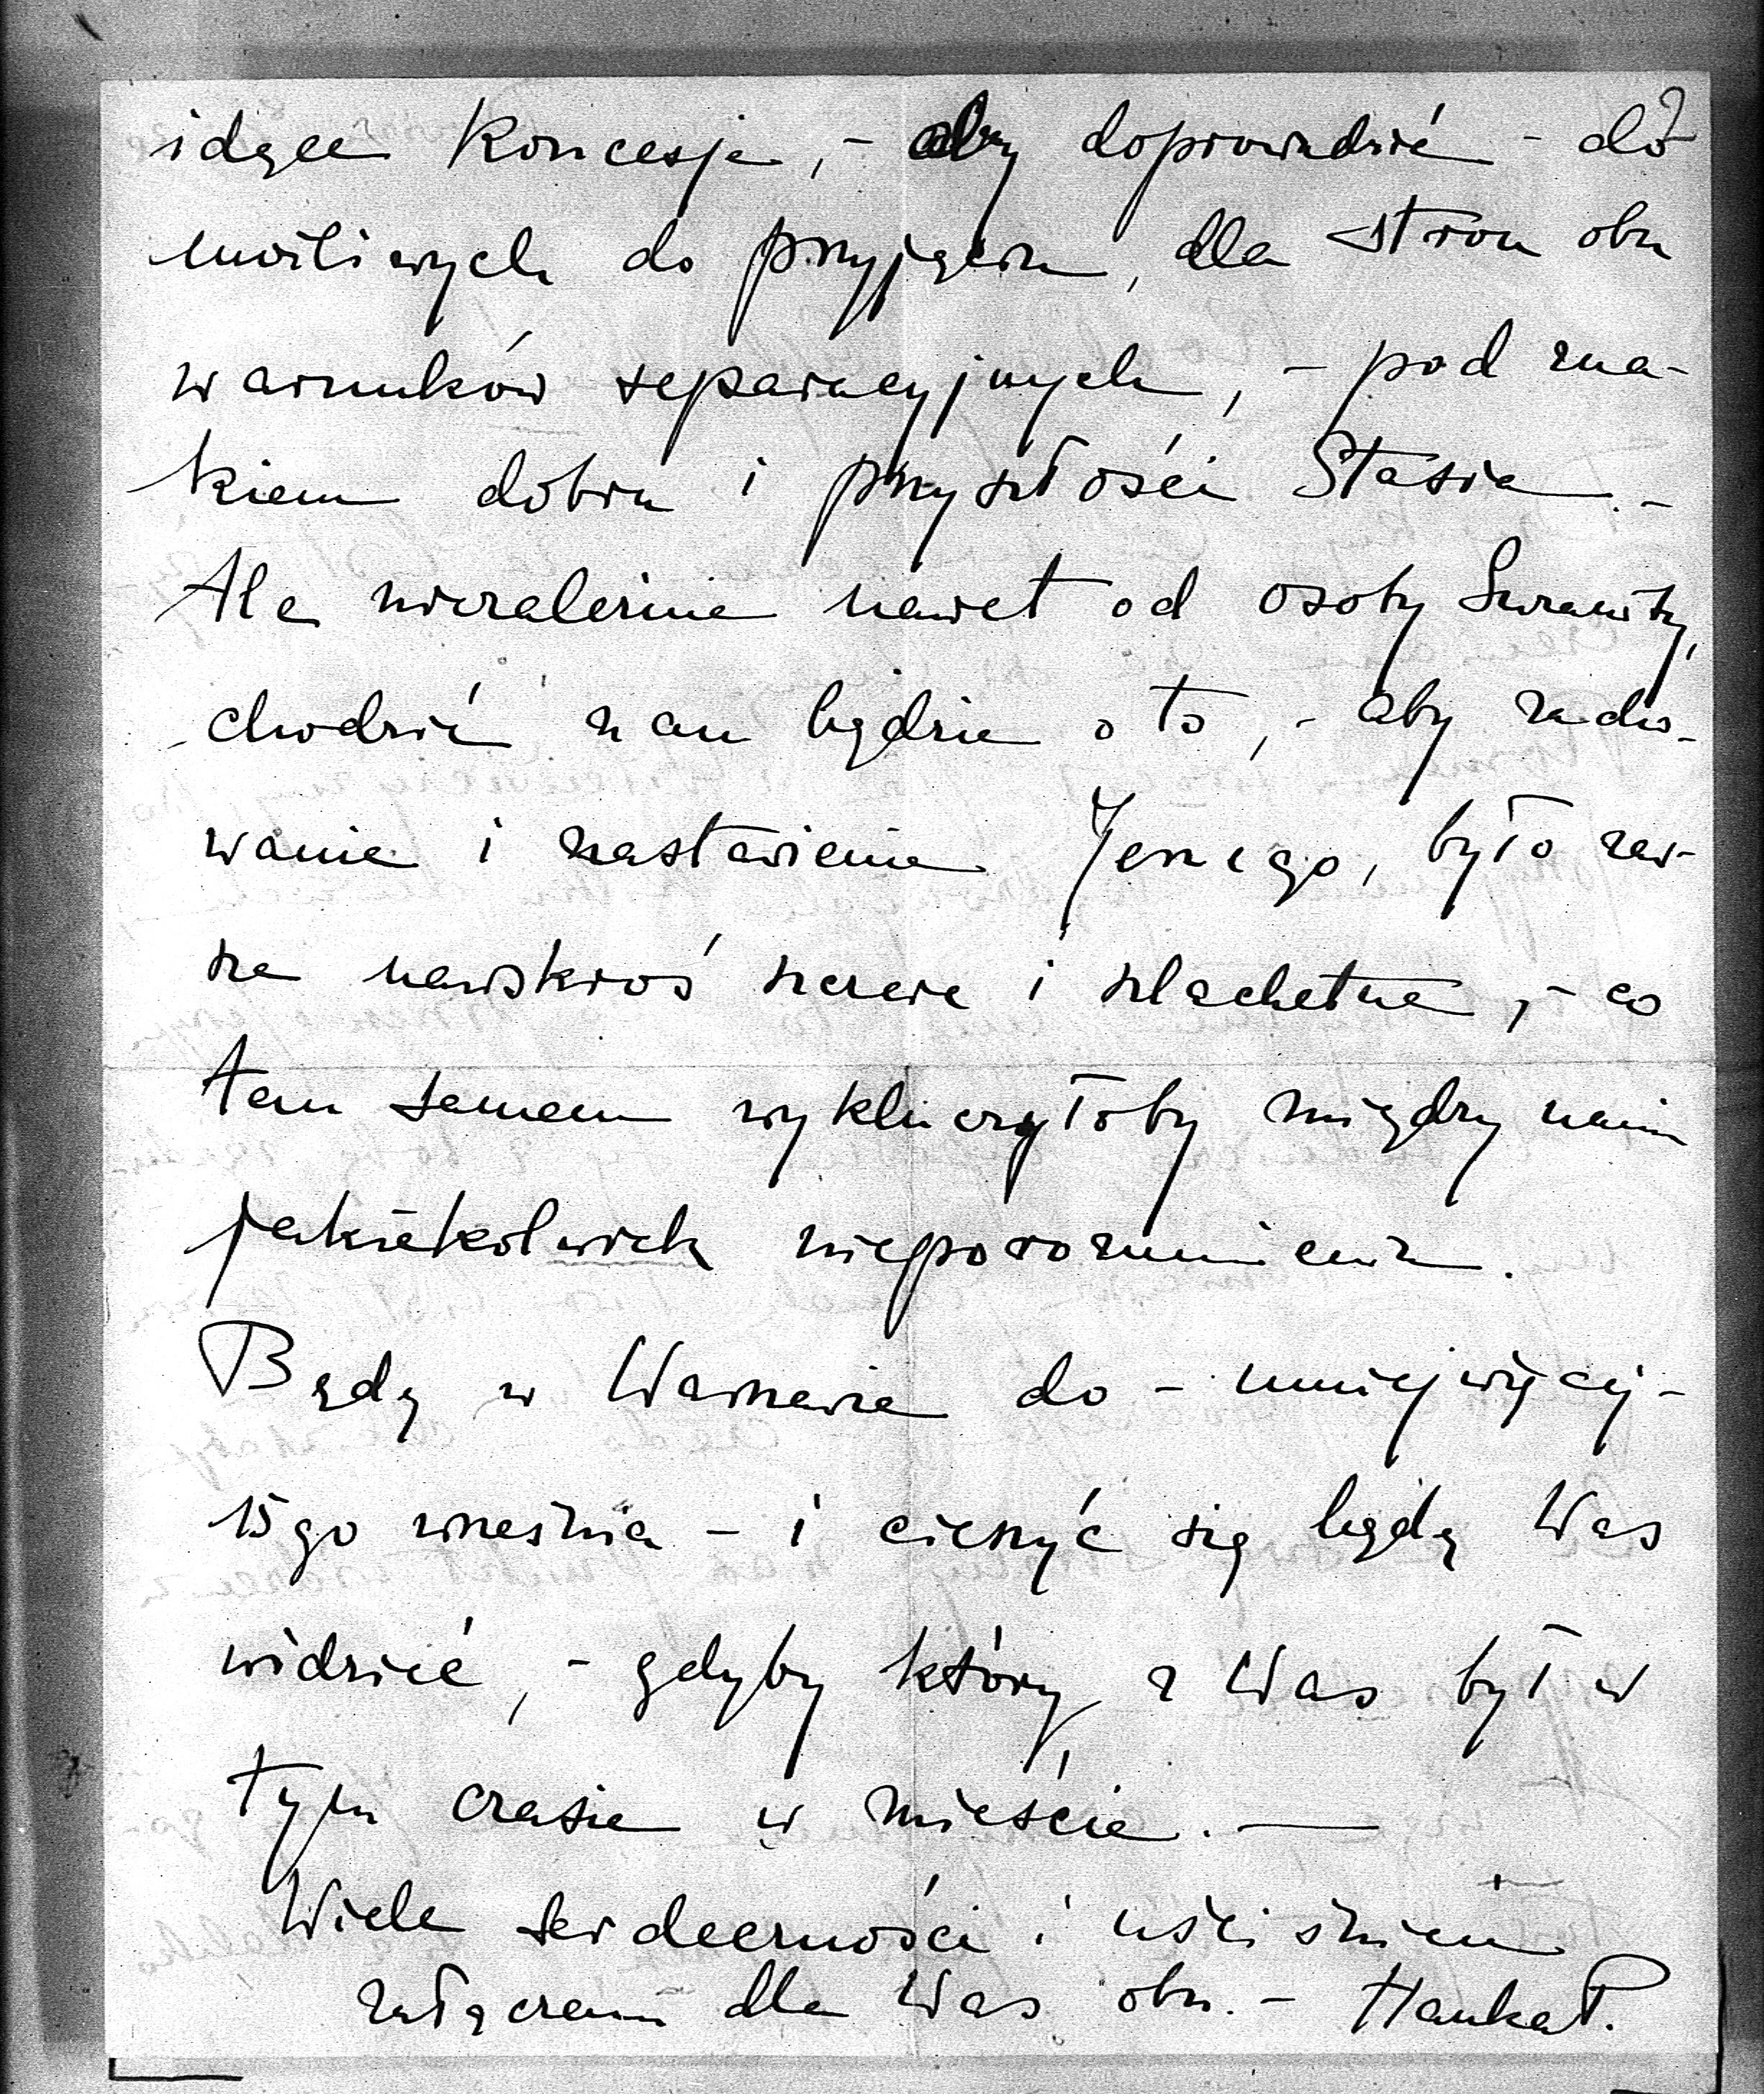 idące koncesje, - aby doprowadzić - do
możliwych do przyjęcia, dla stron obu
warunków separacyjnych, - pod zna-
kiem dobra i przyszłości Stasia. -
Ale niezależnie nawet od osoby
chodzić nam będzie o to, - aby zacho-
wanie i nastawienie Jerzego, było zaw-
sze nawskroś szczere i szlachetne, - co
tem samem wykluczyłoby między nami
jakiekolwiek nieporozumienia.
Będę w Warszawie do - mniejwięcej -
15go września - i cieszyć się będę Was
widzieć, - gdyby który z Was był w
tym czasie w mieście. —
Wiele serdeczności i uściśnień
załączam dla Was obu. - Hanka P.